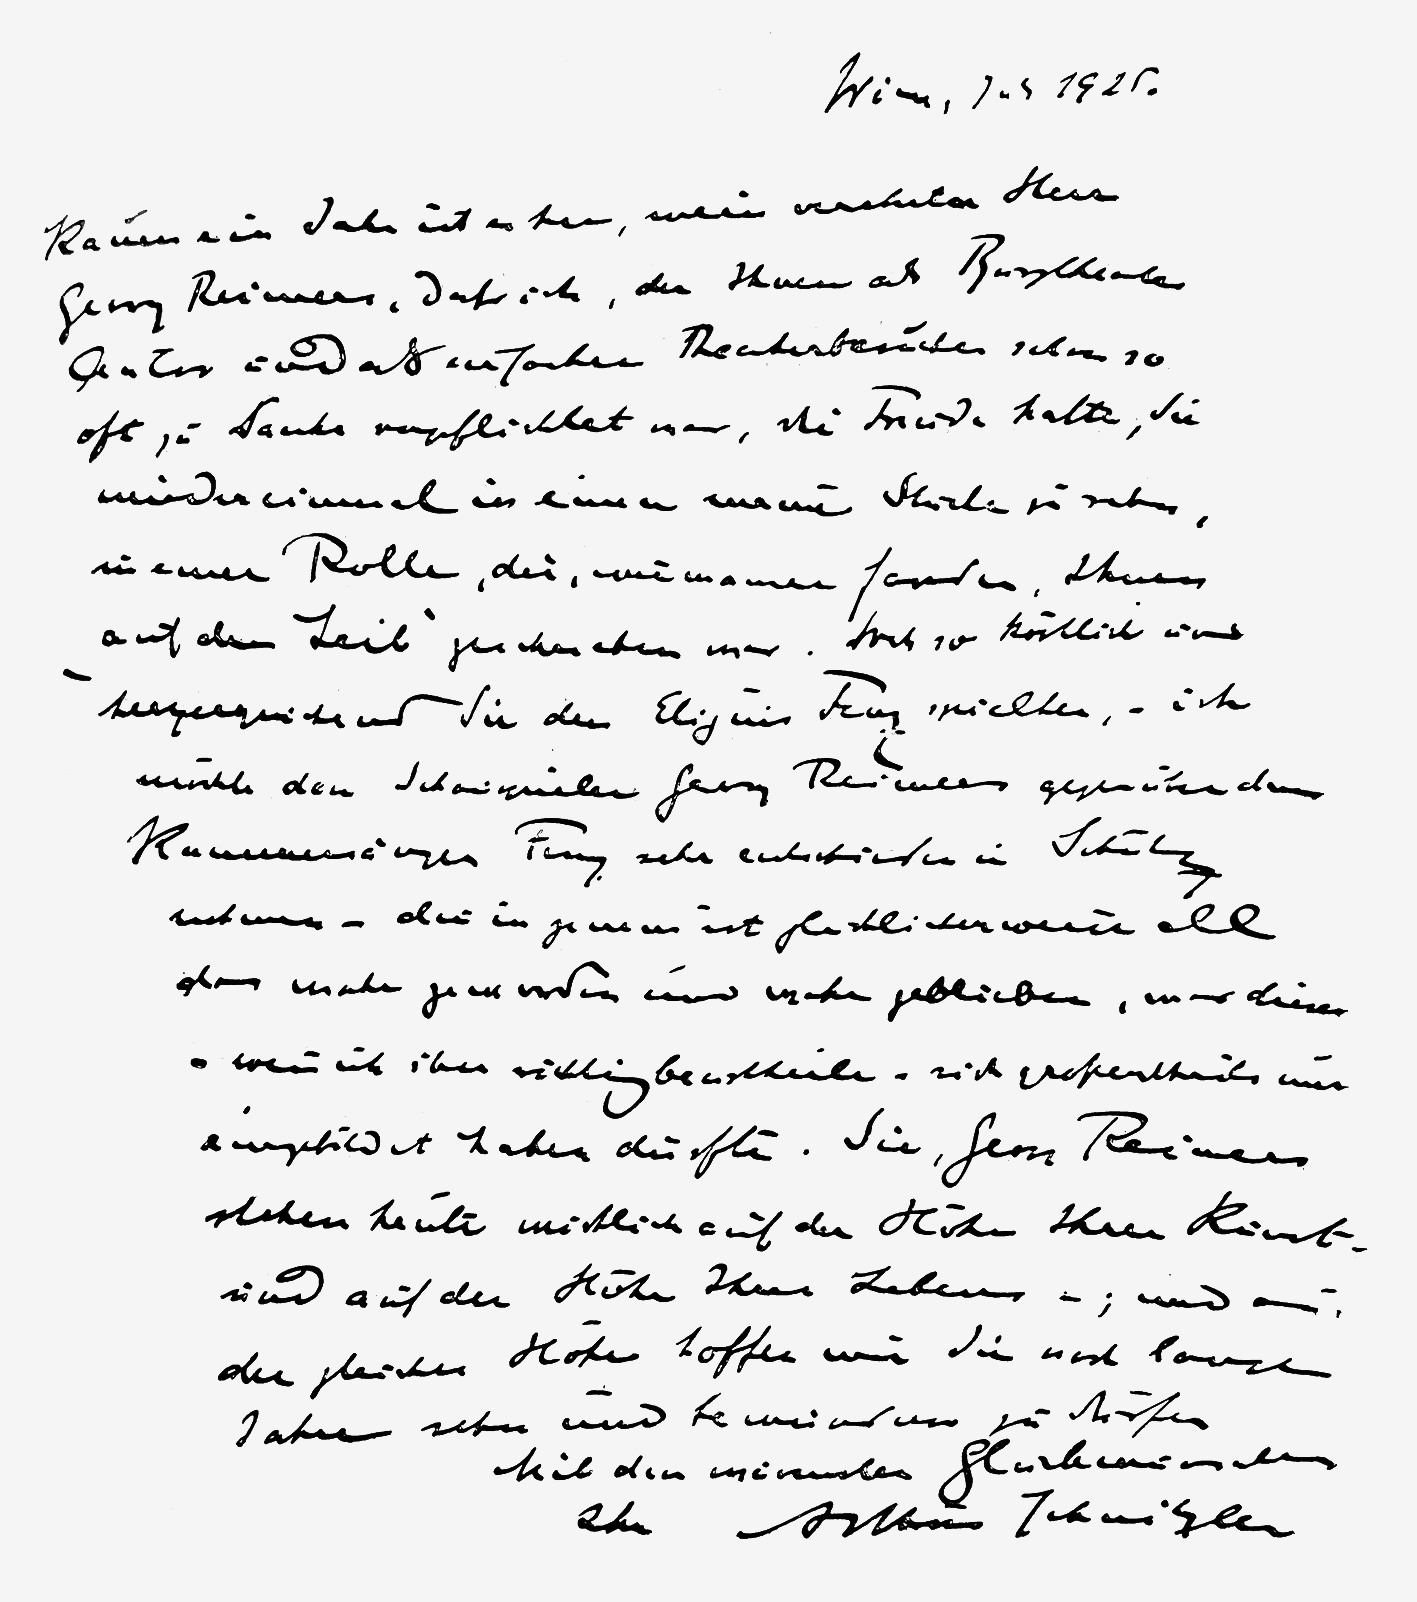 Wien, Juli 1925.
Kaum ein Jahr ist es her, mein verehrter Herr
Georg Reimers, daß ich, der Ihnen als Burgtheater
Autor und als einfacher Theaterbesucher schon so
oft zu Danke verpflichtet war, die Freude hatte, Sie
wieder einmal in einem meiner Stücke zu sehen,
in einer Rolle, die, wie manche fanden, Ihnen
„auf den Leib“ geschrieben war. Doch so köstlich und
herzerquickend Sie den Eligius Fenz spielten, – ich
möchte den Schauspieler Georg Reimers gegenüber dem
Kammersänger Fenz sehr entschieden in Schutz
nehmen – die in jenem ist glücklicherweise all
das wahr geworden und wahr geblieben, was dieser
– wenn ich ihn richtig beurtheile – sich großentheils nur
eingebildet haben dürfte. Sie, Georg Reimers
stehen heute wirklich auf der Höhe Ihrer Kunst –
und auf der Höhe Ihres Lebens –; und auf
der gleichen Höhe hoffen wir Sie noch lange
Jahre sehen und bewundern zu dürfen
Mit den wärmsten Glückwünschen
Ihr Arthur Schnitzler